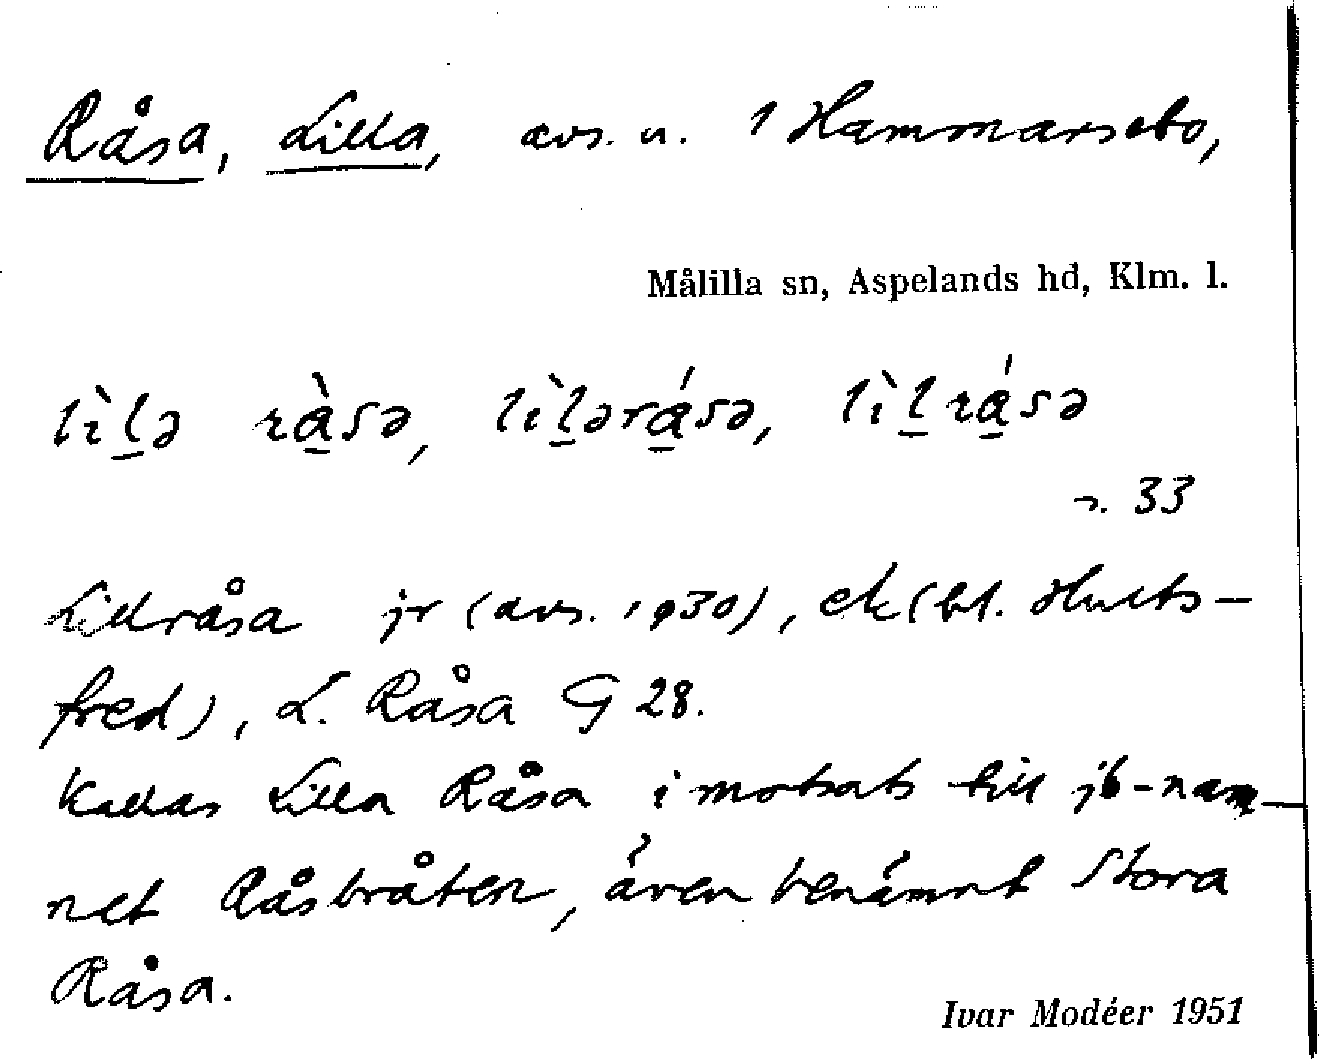 Råsa, Lilla, avs. u. 1 Hammarsebo,
Målilla sn, Aspelands hd, Klm. l.
lìlə ràsə, lìləråsə, lìlråsə
s. 33
Lillråsa jr (avs. 1930), ek (bl. Hults-
fred), L. Råsa G 28.
Kallas Lilla Råsa i motsats till jb-nam-
net Råsbråten, även benämnt Stora
Råsa.
Ivar Modéer 1951